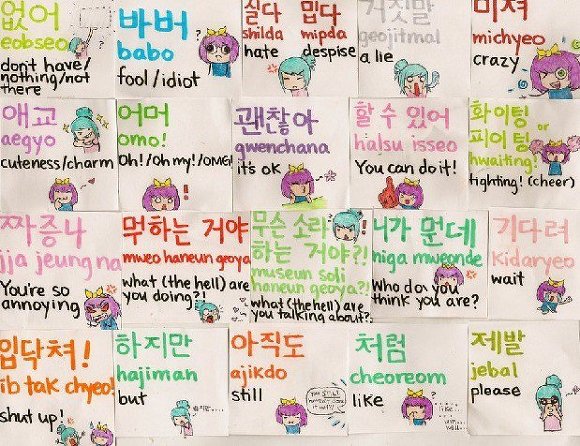 없어
eobseo
don't have/
nothing/not
there
바버
babo
fool/idiot
싫다 밉다
shilda mipda
hate despise
거짓말
geojitmal
a lie
미쳐
michyeo
crazy
애교
aegyo
cuteness/charm
어머
omo!
Oh!/Oh my!/OMG!
괜찮아
gwenchana
its ok
할 수 있어
halsu isseo
You can do it!
화이팅 or
파이팅
hwaiting!
fighting! (cheer)
짜증나
jja jeung na
You're so
annoying
뭐하는 거야
mweo haneun geoya
what (the hell) are
you doing?!
무슨 소리
하는 거야?!
museun soli
haneun geoya?!
what (the hell) are
you talking about?!
니가 뭔데
niga mweonde
Who do you
think you are?
기다려
kidaryeo
wait
입닥쳐!
ib tak chyeo!
shut up!
하지만
hajiman
but
아직도
ajikdo
still
처럼
cheoreom
like
like...
제발
jebal
please